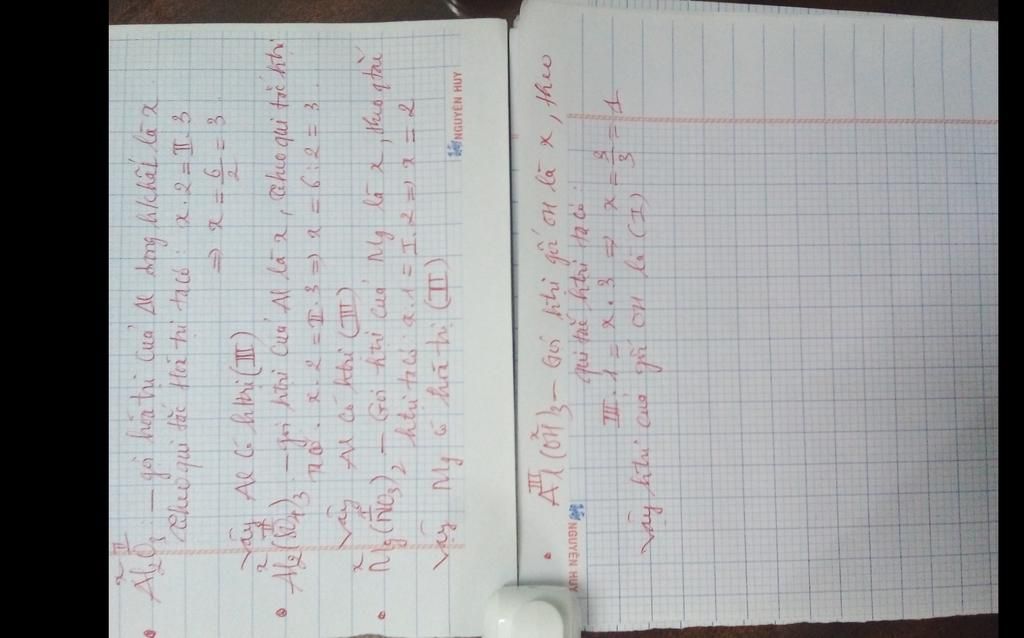 x II
• Al₂O₃ — gọi hóa trị của Al trong h/chất là x
Theo qui tắc Hóa trị ta có: x . 2 = II . 3
⇒ x = 6/2 = 3
Vậy Al có h/trị (III)
x II
• Al₂(SO₄)₃ — gọi h/trị của Al là x, theo qui tắc h/trị
ta có: x . 2 = II . 3 ⇒ x = 6 : 2 = 3
Vậy Al có h/trị (III)
x I
• Mg(NO₃)₂ — Gọi h/trị của Mg là x, theo qtắc
h/trị ta có: x . 1 = I . 2 ⇒ x = 2
Vậy Mg có hóa trị (II)
NGUYÊN HUY
III x
• Al(OH)₃ — Gọi h/trị gốc OH là x, theo
qui tắc h/trị ta có:
III . 1 = x . 3 ⇒ x = 3/3 = 1
Vậy h/trị của gốc OH là (I)
NGUYÊN HUY